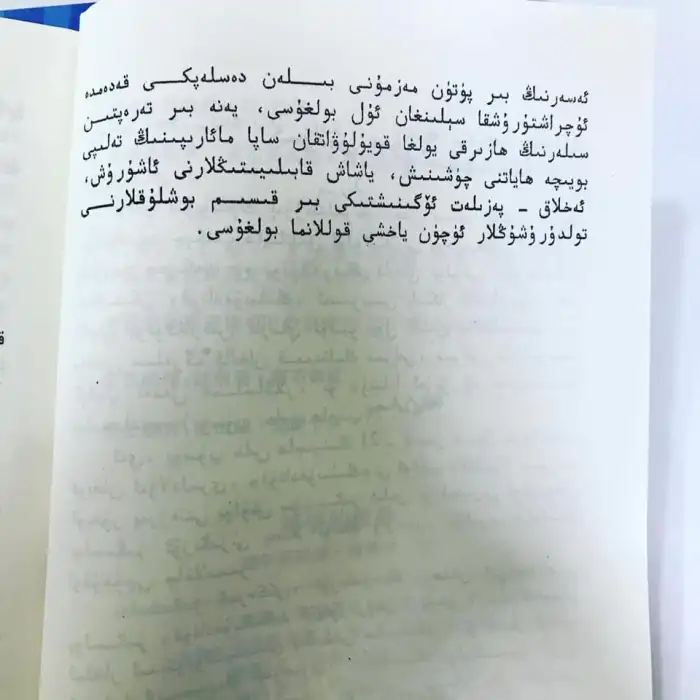 ئەسەرنىڭ بىر پۈتۈن مەزمۇنى بىلەن دەسلەپكى قەدەمدە
ئۇچراشتۇرۇشقا سېلىنغان ئۇل بولغۇسى، يەنە بىر تەرەپتىن
سىلەرنىڭ ھازىرقى يولغا قويۇلۇۋاتقان ساپا مائارىپىنىڭ تەلىپى
بويىچە ھاياتنى چۈشىنىش، ياشاش قابىلىيىتىڭلارنى ئاشۇرۇش،
ئەخلاق - پەزىلەت ئۆگىنىشتىكى بىر قىسىم بوشلۇقلارنى
تولدۇرۇشۇڭلار ئۈچۈن ياخشى قوللانما بولغۇسى.